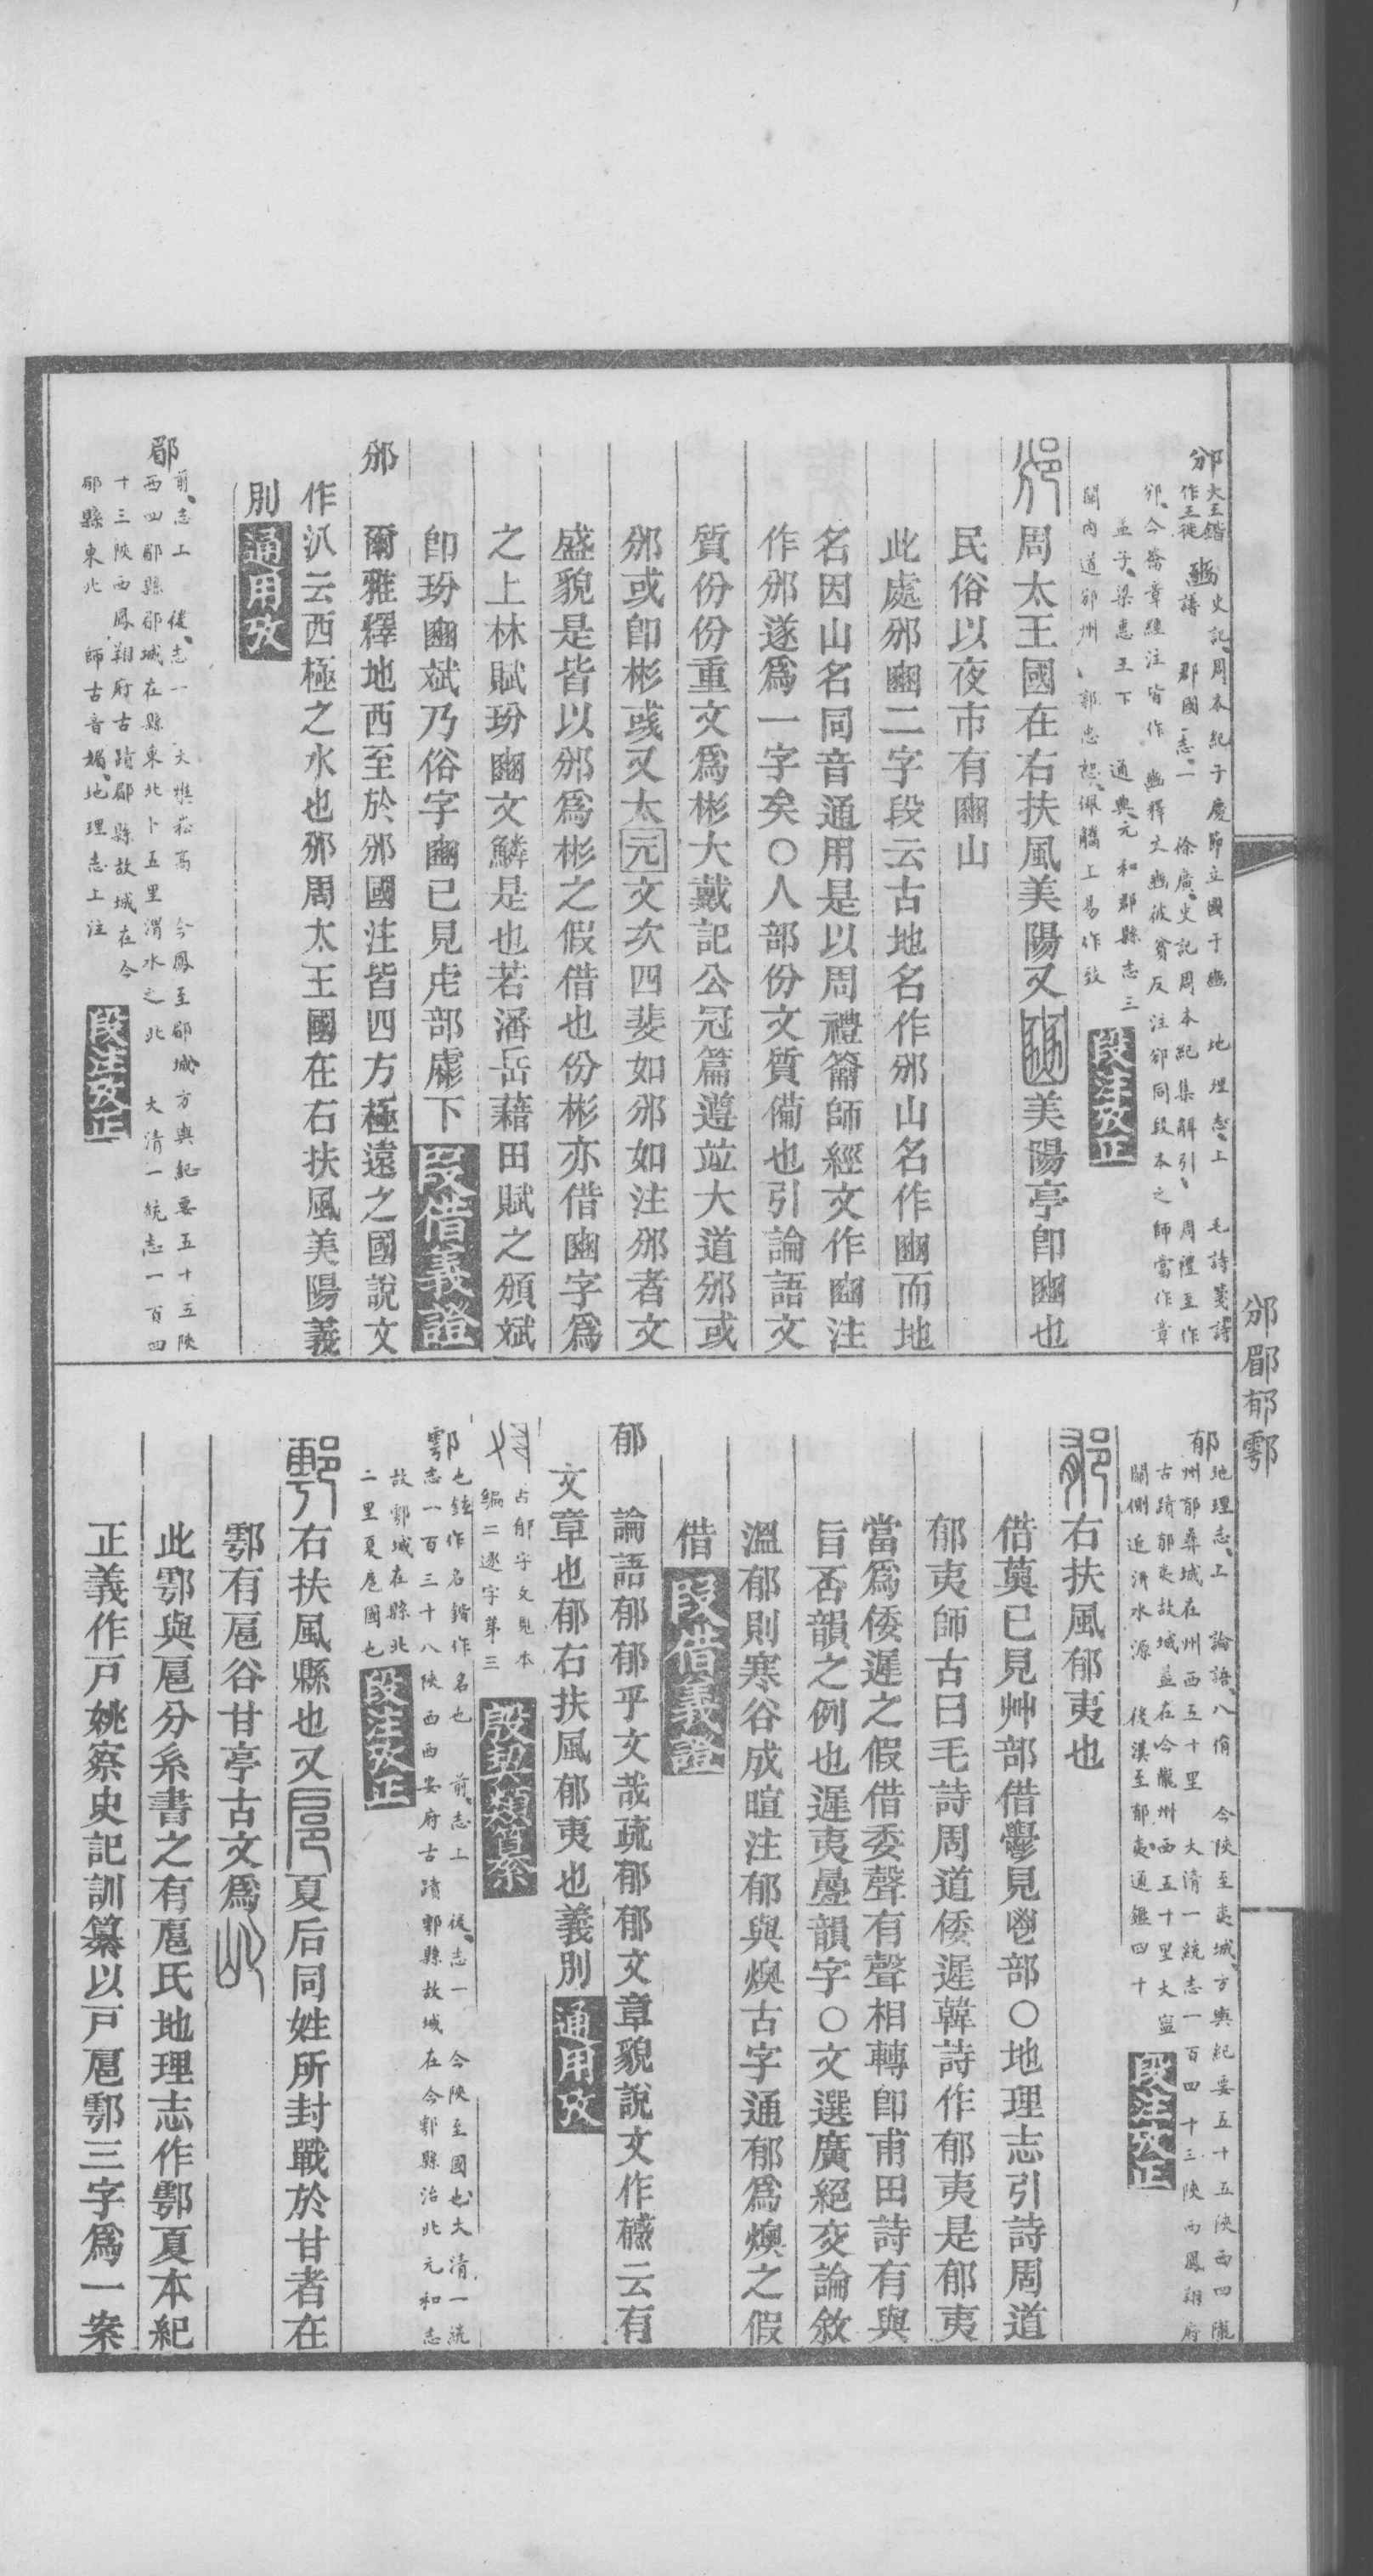 邠郿郁鄠
周太王國在右扶風美陽又豳美陽亭卽豳也
民俗以夜市有豳山
此處邠豳二字段云古地名作邠山名作豳而地
名因山名同音通用是以周禮籥師經文作豳注
作邠遂爲一字矣○人部份文質僃也引論語文
質份份重文爲彬大戴記公冠篇遵竝大道邠或
邠或卽彬彧又太元文次四斐如邠如注邠者文
盛貌是皆以邠爲彬之假借也份彬亦借豳字爲
之上林賦玢豳文鱗是也若潘岳藉田賦之頒斌
卽玢豳斌乃俗字豳已見虍部彪下叚借義證
邠
爾雅釋地西至於邠國注皆四方極遠之國說文
作汃云西極之水也邠周太王國在右扶風美陽義
別通用攷
郿
前志上 後志一 大雅崧高 今鳳至郿城方輿紀要五十五陝
西四郿縣郿城在縣東北十五里渭水之北 大清一統志一百四
十三陝西鳳翔府古蹟郿縣故城在今
郿縣東北 師古音媚地理志上注 段注攷正
郁
地理志上 論語八佾 今陝至夷城方輿紀要五十五陝西四隴
州郁夷城在州西五十里 大清一統志一百四十三陝西鳳翔府
古蹟郁夷故城蓋在今隴州西五十里大寧
關側近汧水源 後漢至郁夷通鑑四十 段注攷正
右扶風郁夷也
借薁已見艸部借鬱見鬯部○地理志引詩周道
郁夷師古曰毛詩周道倭遲韓詩作郁夷是郁夷
當爲倭遲之假借委聲有聲相轉卽甫田詩有與
旨否韻之例也遲夷曡韻字○文選廣絕交論敘
溫郁則寒谷成暄注郁與燠古字通郁爲燠之假
借叚借義證
郁
論語郁郁乎文哉疏郁郁文章貌說文作䫻云有
文章也郁右扶風郁夷也義別通用攷
占郁字文見本
編二逐字第三 殷契類纂
鄠
也鉉作名鍇作名也 前志上 後志一 今陝至國也大清一統
志一百三十八陝西西安府古蹟鄠縣故城在今鄠縣治北元和志
故鄠城在縣北
二里夏扈國也 段注攷正
右扶風縣也又扈夏后同姓所封戰於甘者在
鄠有扈谷甘亭古文爲
此鄠與扈分系書之有扈氏地理志作鄠夏本紀
正義作戸姚察史記訓纂以戸扈鄠三字爲一案